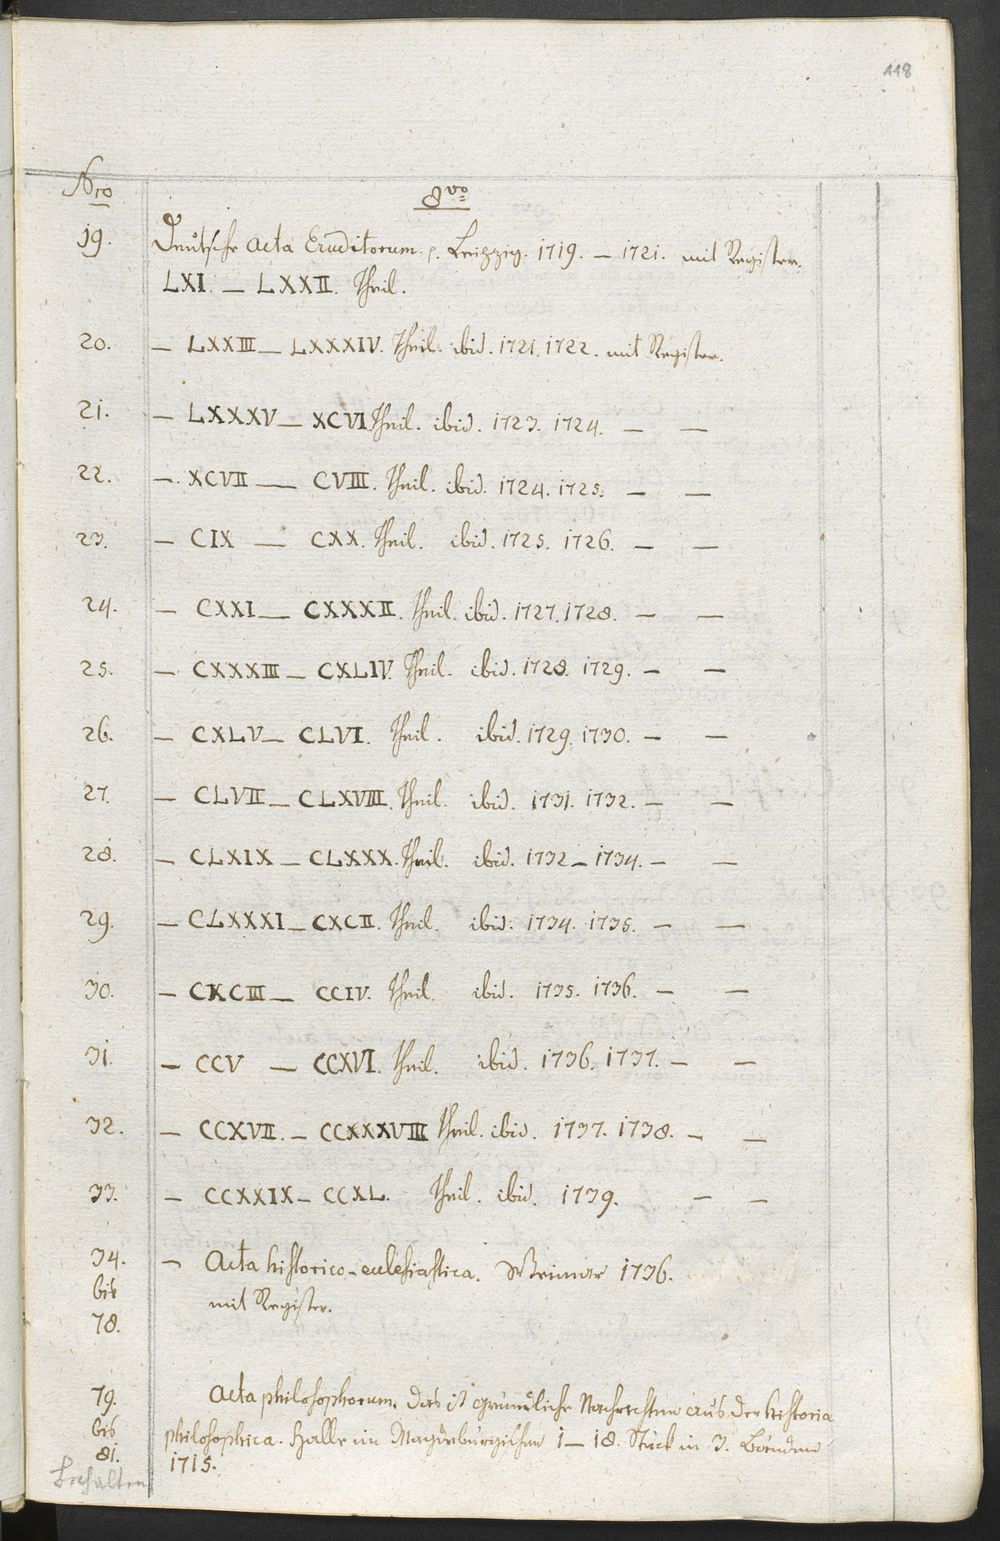 118
Nro
8vo
19. Deutsche Acta Eruditorum. Leipzig. 1719. — 1721. mit Register.
LXI. — LXXII. Theil.
20. — LXXIII — LXXXIV. Theil. ibid. 1721. 1722. mit Register.
21. — LXXXV — XCVI Theil. ibid. 1723. 1724. — —
22. — XCVII — CVIII. Theil. ibid. 1724. 1725. — —
23. — CIX — CXX. Theil. ibid. 1725. 1726. — —
24. — CXXI — CXXXII. Theil. ibid. 1727. 1728. — —
25. — CXXXIII — CXLIV. Theil. ibid. 1728. 1729. — —
26. — CXLV — CLVI. Theil. ibid. 1729. 1730. — —
27. — CLVII — CLXVIII. Theil. ibid. 1731. 1732. — —
28. — CLXIX — CLXXX. Theil. ibid. 1732 — 1734. — —
29. — CLXXXI — CXCII. Theil. ibid. 1734. 1735. — —
30. — CXCIII — CCIV. Theil. ibid. 1735. 1736. — —
31. — CCV — CCXVI. Theil. ibid. 1736. 1737. — —
32. — CCXVII. — CCXXXVIII Theil. ibid. 1737. 1738. — —
33. — CCXXIX — CCXL. Theil. ibid. 1739. — —
34. — Acta historico-eclesiastica. Weimar 1736.
bis mit Register.
78.
79. Acta philosophorum. das ist gründliche Nachrichten aus der historia
bis philosophica. Halle im Magdeburgischen 1 — 18. Stück in 3. Bänden
81. 1715.
behalten